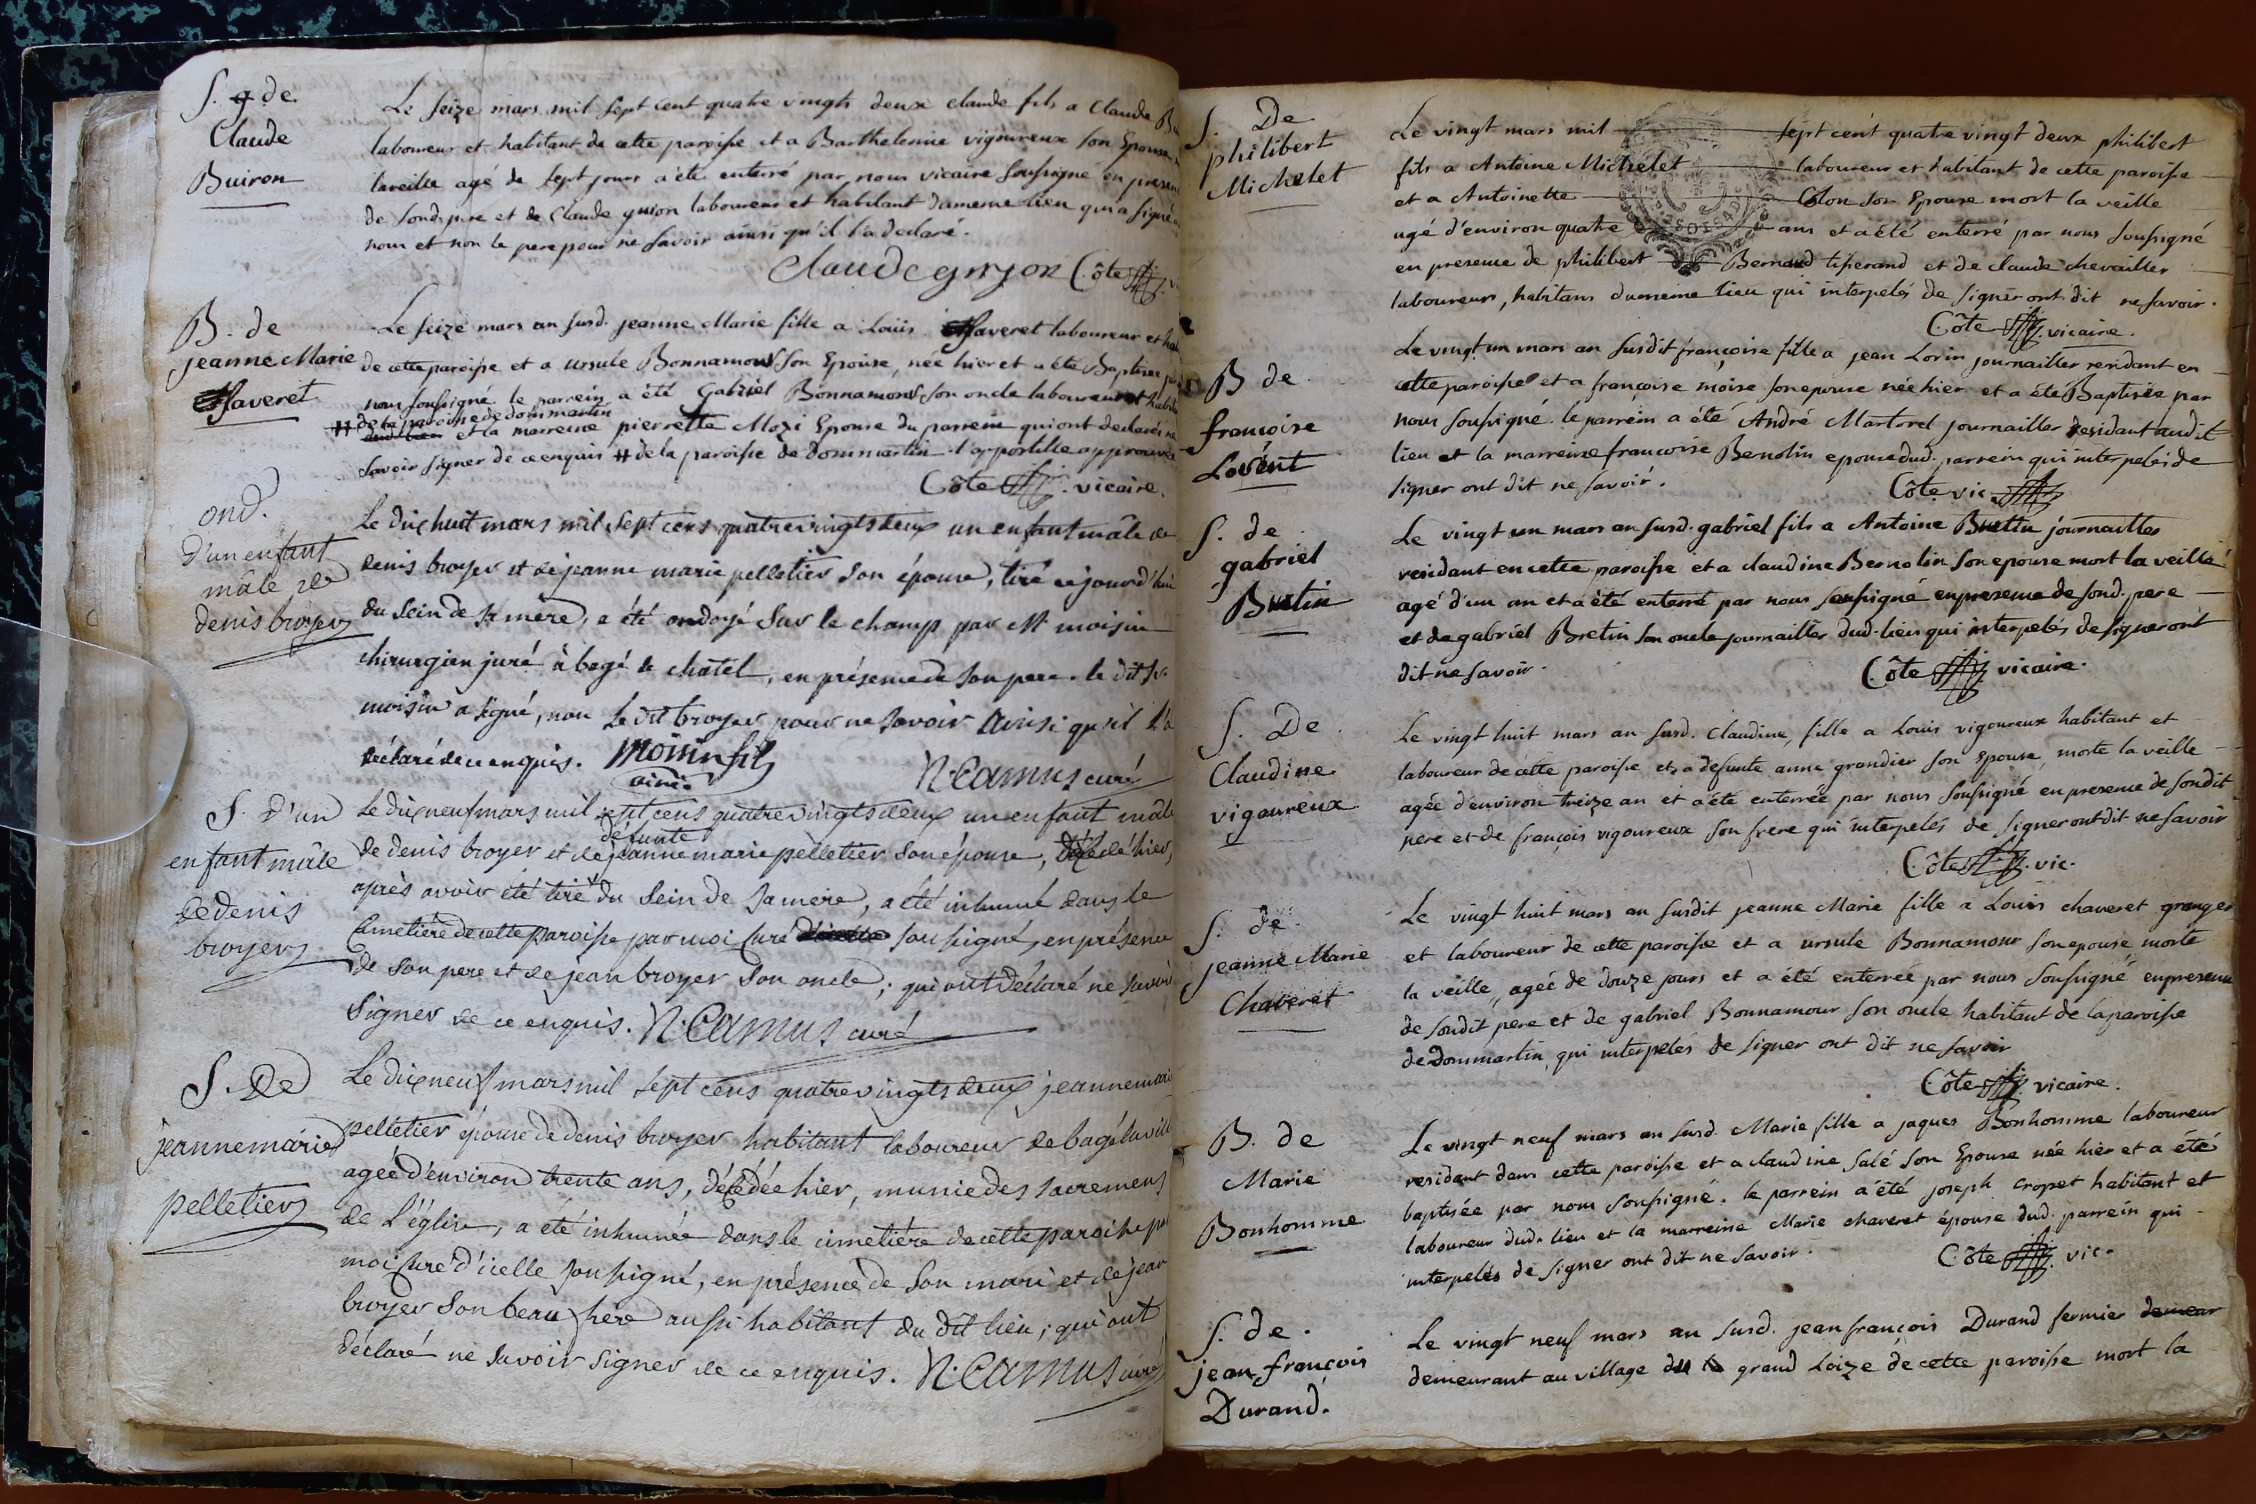 S. g de.
Claude
Buiron
Le seize mars mil sept cent quatre vingts deux claude fils a Claude
laboureur et habitant de cette paroisse et a Barthelemie vigoureux son Epouse
laveille agé de sept jours a été enterré par nous vicaire soussigné en presen
de sond. pere et de Claude guion laboureur et habitant dumeme lieu qui a signé
nous et non le pere pour ne savoir ainsi qu'il l'a declaré.
Claude gnyon Côte
B. de
jeanne Marie
Chaveret
Le seize mars an susd. jeanne Marie fille a Louis Chaveret laboureur et hab
de cette paroisse et a ursule Bonnamour son Epouse, née hier et a été Baptisée par
nous soussigné le parrein a été Gabriel Bonnamour son oncle laboureur et habita
de la paroisse de dommartin
et la marreine pierrette Mozi Epouse du parrein qui ont declarés ne
savoir signer de ce enquis # de la paroisse de dommartin l'appostille approuvée
Côte vicaire.
ond.
d'un enfant
mâle de
denis broyer
Le dixhuit mars mil sept cens quatrevingts deux un enfant mâle de
denis broyer et de jeanne marie pelletier son épouse, tiré cejourd'hui
du sein de sa mère, a été ondoyé sur le champ par Mr moisin
chirurgien juré à bagé le châtel, en présence de son pere. le dit Sr.
moisin a signé, non le dit broyer pour ne savoir ainsi qu'il l'a
déclaré de ce enquis. moisin fils
ainé
N. Camus curé
S. d'un
enfant mâle
de denis
broyer
Le dixneuf mars mil sept cens quatrevingts deux un enfant mâle
défunte
de denis broyer et de jeanne marie pelletier son épouse, décédé hier,
après avoir été tiré du sein de sa mère, a été inhumé dans le
cimetière de cette paroisse par moi curé soussigné, en présence
de son pere et de jean broyer son oncle; qui ont déclaré ne savoir
signer de ce enquis. N. Camus curé
S. De
jeanne marie
pelletier
Le dixneuf mars mil sept cens quatrevingts deux jeanne marie
pelletier épouse de denis broyer habitant laboureur de bagé la ville
agée d'environ trente ans, décédée hier, munie des sacremens
de L'église, a été inhumée dans le cimetière de cette paroisse par
moi curé d'icelle soussigné, en présence de son mari et de jean
broyer son beau frère aussi habitant du dit lieu; qui ont
déclaré ne savoir signer de ce enquis. N. Camus curé
S. De
philibert
Michelet
Le vingt mars mil sept cent quatre vingt deux philibert
fils a Antoine Michelet laboureur et habitant de cette paroisse
et a Antoinette Colon son Epouse mort la veille
agé d'environ quatre ans et a été enterré par nous soussigné
en presence de philibert Bernard tisserand et de claude chevailler
laboureurs, habitans dumeme lieu qui interpelés de signer ont dit ne savoir.
Côte vicaire.
B de
francoise
Lorent
Le vingt un mars an susdit françoise fille a jean Lorin journailler residant en
cette paroisse et a françoise moise son epouse née hier et a été Baptisée par
nous soussigné. le parrein a été André Martorel journailler residant audit
lieu et la marreine francoise Benotin epouse dud. parrein qui interpelés de
signer ont dit ne savoir.
Côte vic.
S. de
gabriel
Bretin
Le vingt un mars an susd. gabriel fils a Antoine Bretin journailler
residant en cette paroisse et a claudine Bernolin son epouse mort la veille
agé d'un an et a été enterré par nous soussigné en presence de sond. pere
et de gabriel Bretin son oncle journailler dud. lieu qui interpelés de signer ont
dit ne savoir.
Côte vicaire.
S. De
Claudine
vigoureux
Le vingt huit mars an susd. Claudine, fille a Louis vigoureux habitant et
laboureur de cette paroisse et a defunte anne grandier son Epouse, morte la veille
agée d'environ treize an et a été enterrée par nous soussigné en presence de sondit
pere et de françois vigoureux son frere qui interpelés de signer ont dit ne savoir
Côte vic.
S. de
jeanne Marie
Chaveret
Le vingt huit mars an susdit jeanne Marie fille a Louis chaveret granger
et laboureur de cette paroisse et a ursule Bonnamour son epouse morte
la veille, agée de douze jours et a été enterrée par nous soussigné en presence
de sondit pere et de gabriel Bonnamour son oncle habitant de la paroisse
de Dommartin, qui interpelés de signer ont dit ne savoir
Côte vicaire.
B. de
Marie
Bonhomme
Le vingt neuf mars an susd. Marie fille a jaques Bonhomme laboureur
residant dans cette paroisse et a claudine Salé son Epouse née hier et a été
baptisée par nous soussigné. le parrein a été joseph cropet habitant et
laboureur dud. lieu et la marreine Marie chaveret épouse dud. parrein qui
interpelés de signer ont dit ne savoir.
Côte vic.
S. de.
jean françois
Durand.
Le vingt neuf mars an susd. jean françois Durand fermier demeur
demeurant au village du grand Loize de cette paroisse mort la